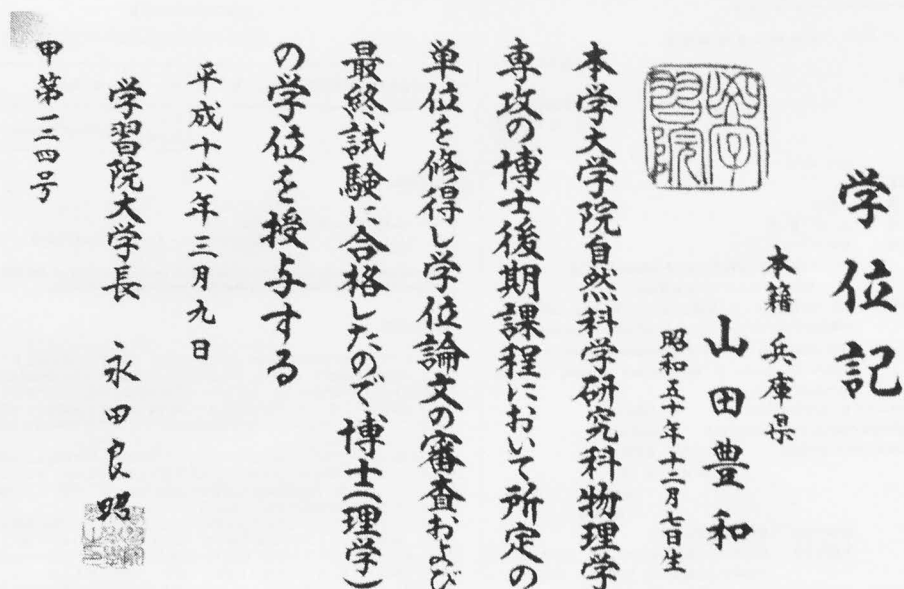 学位記
本籍 兵庫県
山田豊和
昭和五十年十二月七日生
学習院
本学大学院自然科学研究科物理学
専攻の博士後期課程において所定の
単位を修得し学位論文の審査および
最終試験に合格したので博士(理学)
の学位を授与する
平成十六年三月九日
学習院大学長 永田良昭
甲第一二四号